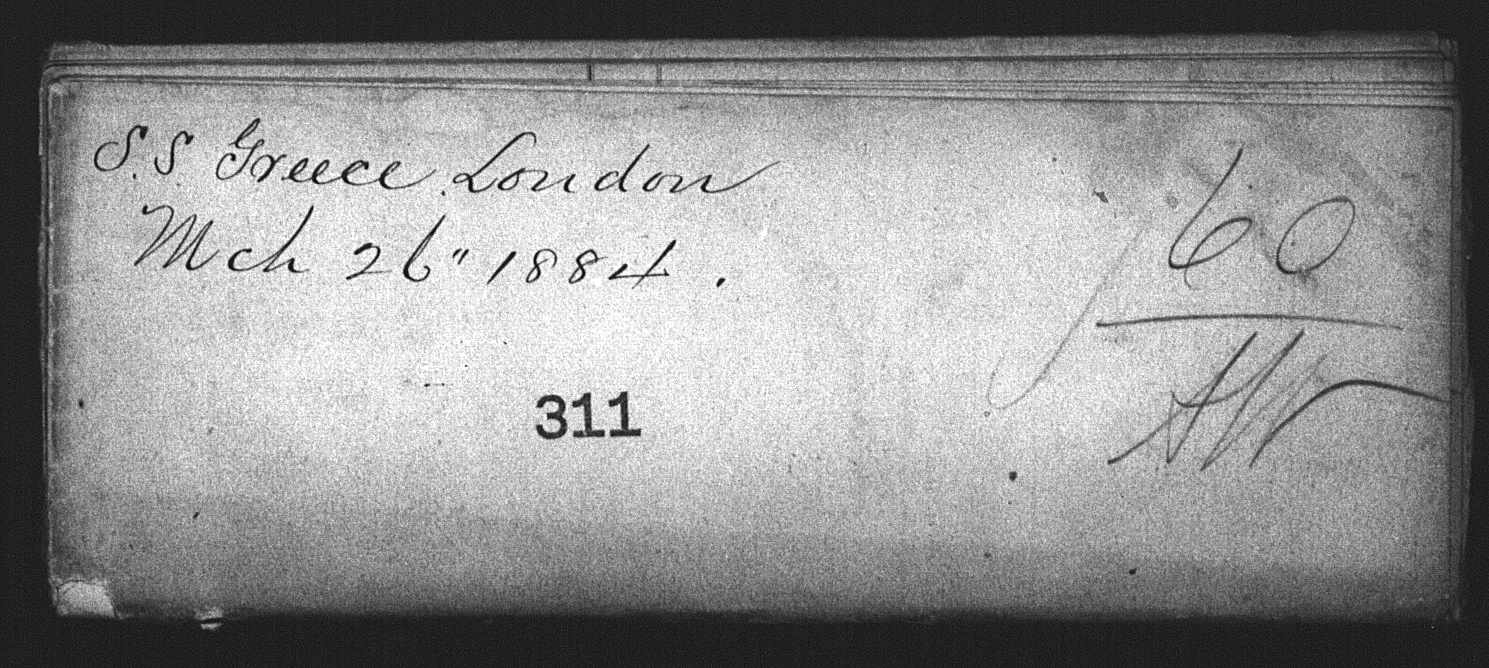 S.S. Greece London
Mch 26" 1884.
60
311